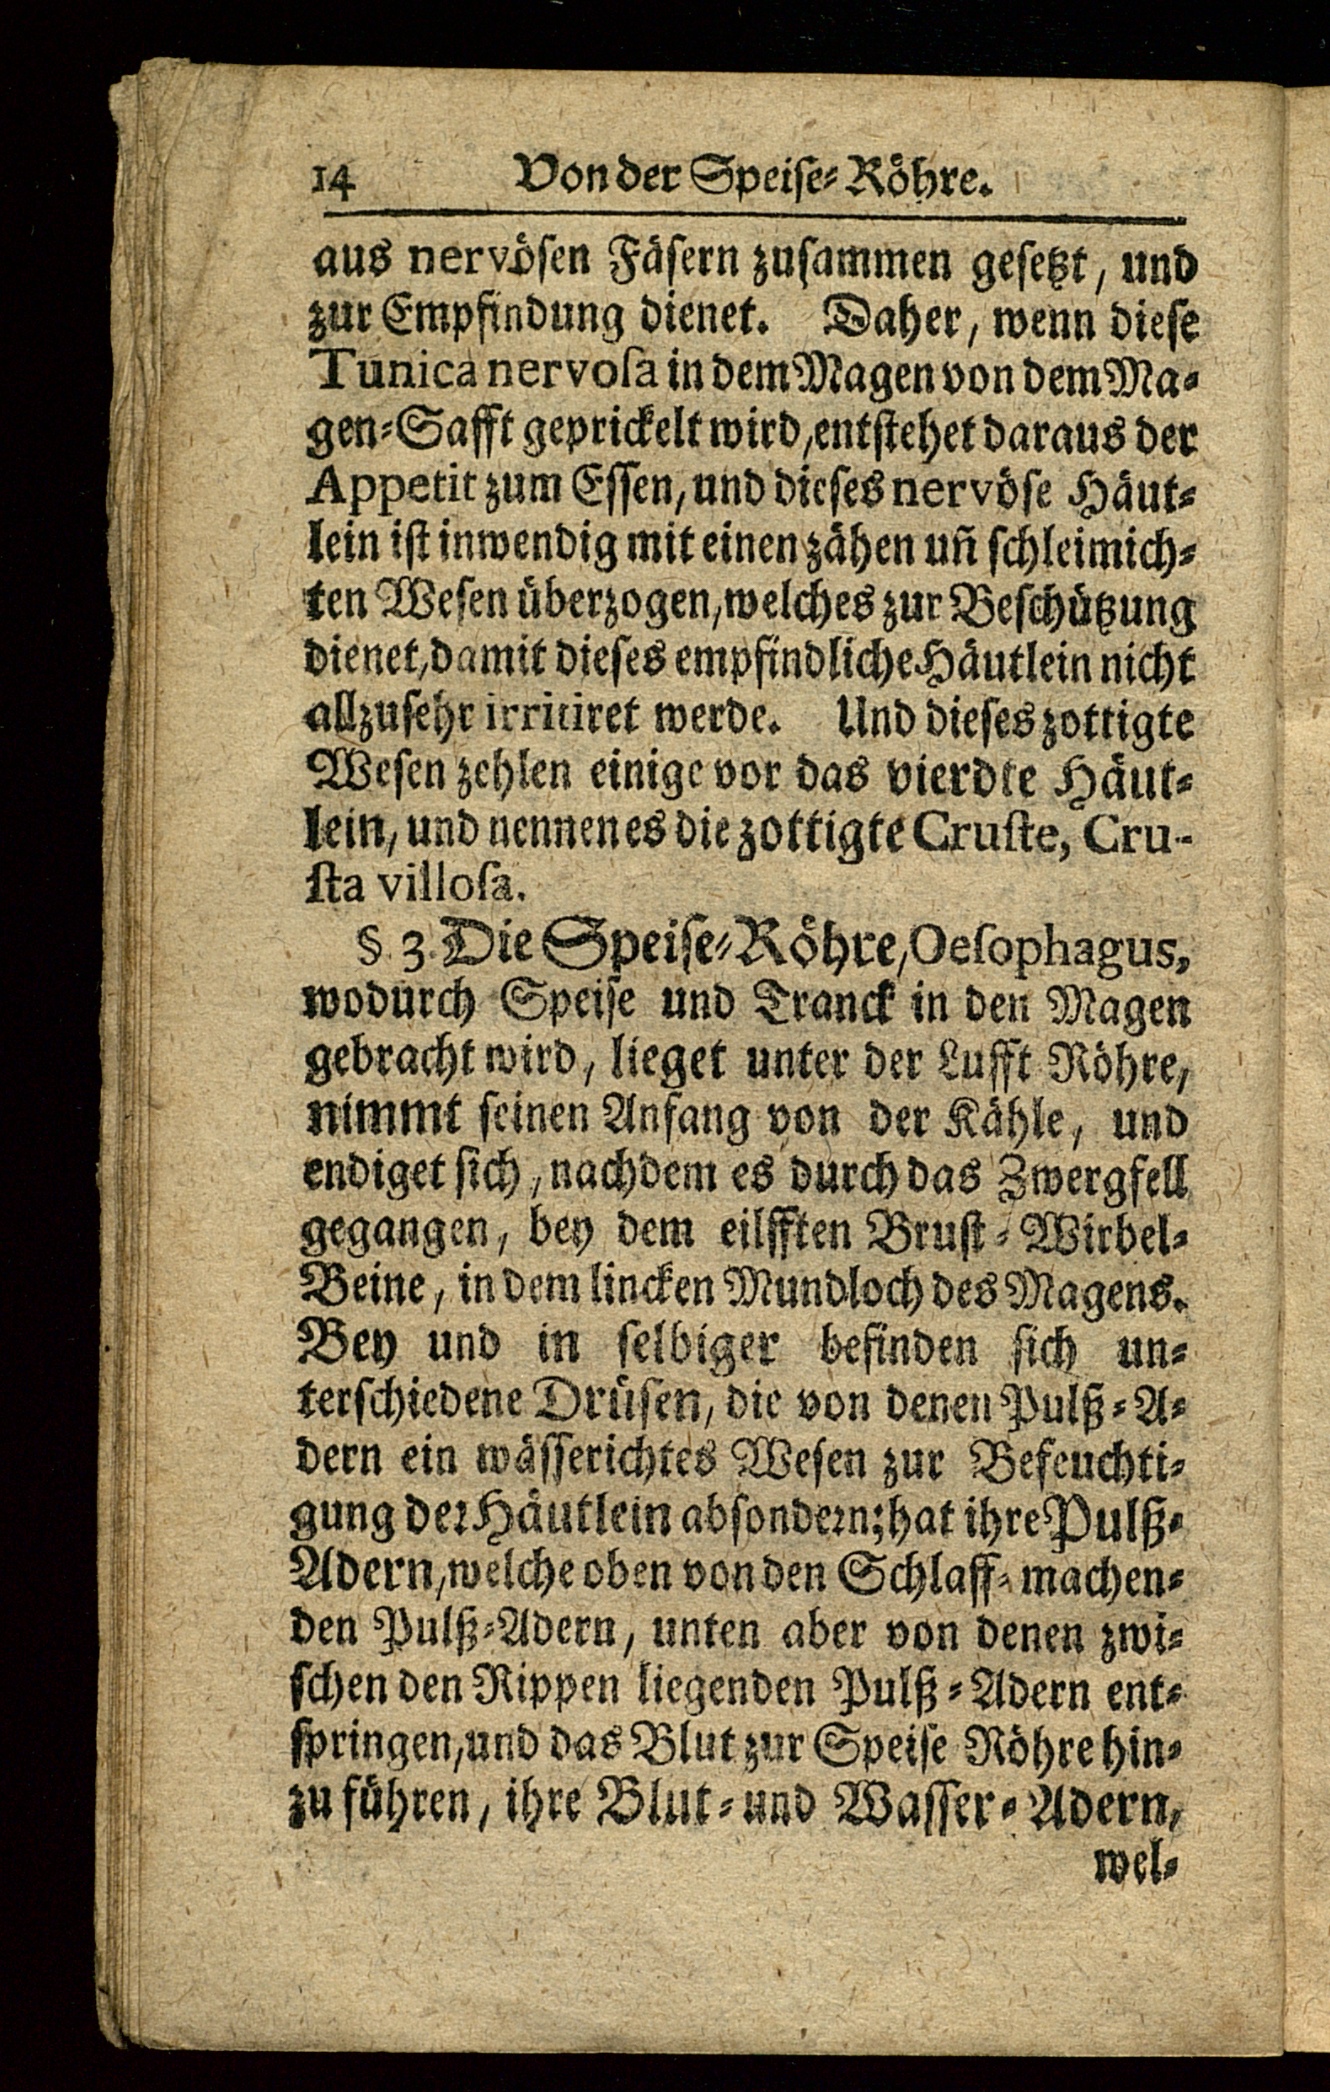 14 Von der Speise-Röhre.
aus nervösen Fäsern zusammen gesetzt, und
zur Empfindung dienet. Daher, wenn diese
Tunica nervosa in dem Magen von dem Ma-
gen-Safft geprickelt wird, entstehet daraus der
Appetit zum Essen, und dieses nervöse Häut-
lein ist inwendig mit einen zähen uñ schleimich-
ten Wesen überzogen, welches zur Beschützung
dienet, damit dieses empfindliche Häutlein nicht
allzusehr irritiret werde. Und dieses zottigte
Wesen zehlen einige vor das vierdte Häut-
lein, und nennen es die zottigte Cruste, Cru-
sta villosa.
§. 3. Die Speise-Röhre, Oesophagus,
wodurch Speise und Tranck in den Magen
gebracht wird, lieget unter der Lufft Röhre,
nimmt seinen Anfang von der Kähle, und
endiget sich, nachdem es durch das Zwergfell
gegangen, bey dem eilfften Brust-Wirbel-
Beine, in dem lincken Mundloch des Magens.
Bey und in selbiger befinden sich un-
terschiedene Drüsen, die von denen Pulß-A-
dern ein wässerichtes Wesen zur Befeuchti-
gung der Häutlein absondern; hat ihre Pulß-
Adern, welche oben von den Schlaff-machen-
den Pulß-Adern, unten aber von denen zwi-
schen den Rippen liegenden Pulß-Adern ent-
springen, und das Blut zur Speise Röhre hin-
zu führen, ihre Blut- und Wasser-Adern,
wel-